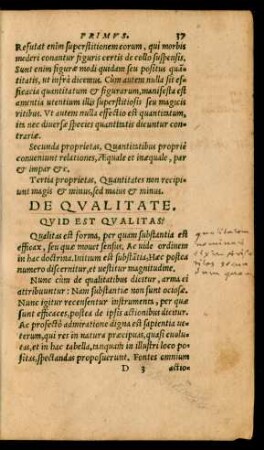 PRIMVS. 37
Refutat enim superstitionem eorum, qui morbis
mederi conantur figuris certis de collo suspensis.
Sunt enim figuræ modi quidam seu positus quã
titatis, ut infrà dicemus. Cum autem nulla sit ef-
ficacia quantitatum & figurarum, manifesta est
amentia utentium illis superstitiosis seu magicis
ritibus. Vt autem nulla effectio est quantitatum,
ita nec diuersæ species quantitatis dicuntur con-
trariæ.
Secunda proprietas, Quantitatibus propriè
conueniunt relationes, Æquale et inæquale, par
& impar &c.
Tertia proprietas, Quantitates non recipi-
unt magis & minus, sed maius & minus.
DE QVALITATE.
QVID EST QVALITAS?
Qualitas est forma, per quam substantia est
efficax, seu que mouet sensus. Ac uide ordinem
in hac doctrina. Initium est substãtia, Hæc postea
numero discernitur, et uestitur magnitudine.
Nunc cùm de qualitatibus dicitur, arma ei
attribuuntur: Nam substantiæ non sunt ociosæ.
Nunc igitur recensentur instrumenta, per quæ
sunt efficaces, postea de ipsis actionibus dicitur.
Ac profectò admiratione digna est sapientia ue-
terum, qui res in natura præcipuas, quasi euolu-
tas, et in hac tabella, tanquam in illustri loco po-
sitas, spectandas proposuerunt. Fontes omnium
D 3 actio-
qualitatem